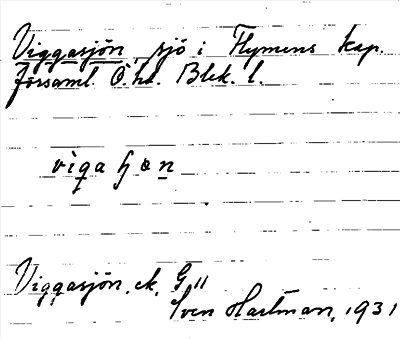 Viggasjön, sjö i Flymens kap.
församl. Ö. hd. Blek. l.
viga
Viggasjön. ek. G 11
Sven Hartman, 1931